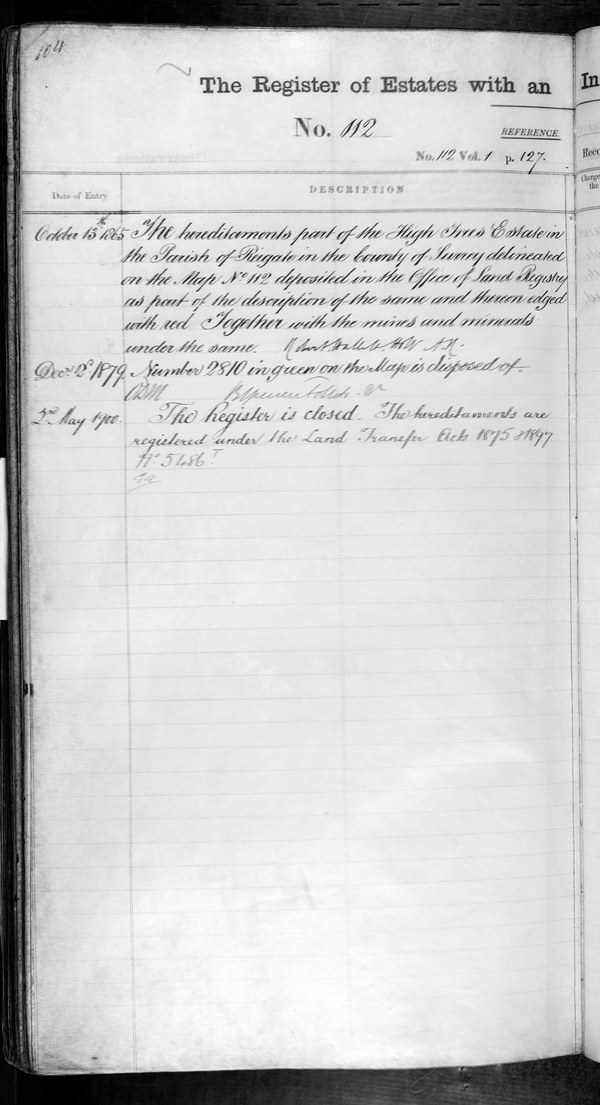 104
The Register of Estates with an
No. 112
REFERENCE.
No. 112 Vol. 1 p. 127.
Date of Entry
DESCRIPTION
October 13th 1865 The hereditaments part of the High Trees Estate in
the Parish of Reigate in the County of Surrey delineated
on the Map No 112 deposited in the Office of Land Registry
as part of the description of the same and thereon edged
with red Together with the mines and minerals
under the same. Robert Hallett
Decr 2d 1879 Number 2810 in green on the Map is disposed of.
2nd May 1900. The Register is closed. The hereditaments are
registered under the Land Transfer Acts 1875 & 1897
No 5486 T
In
Reco
Charge
the